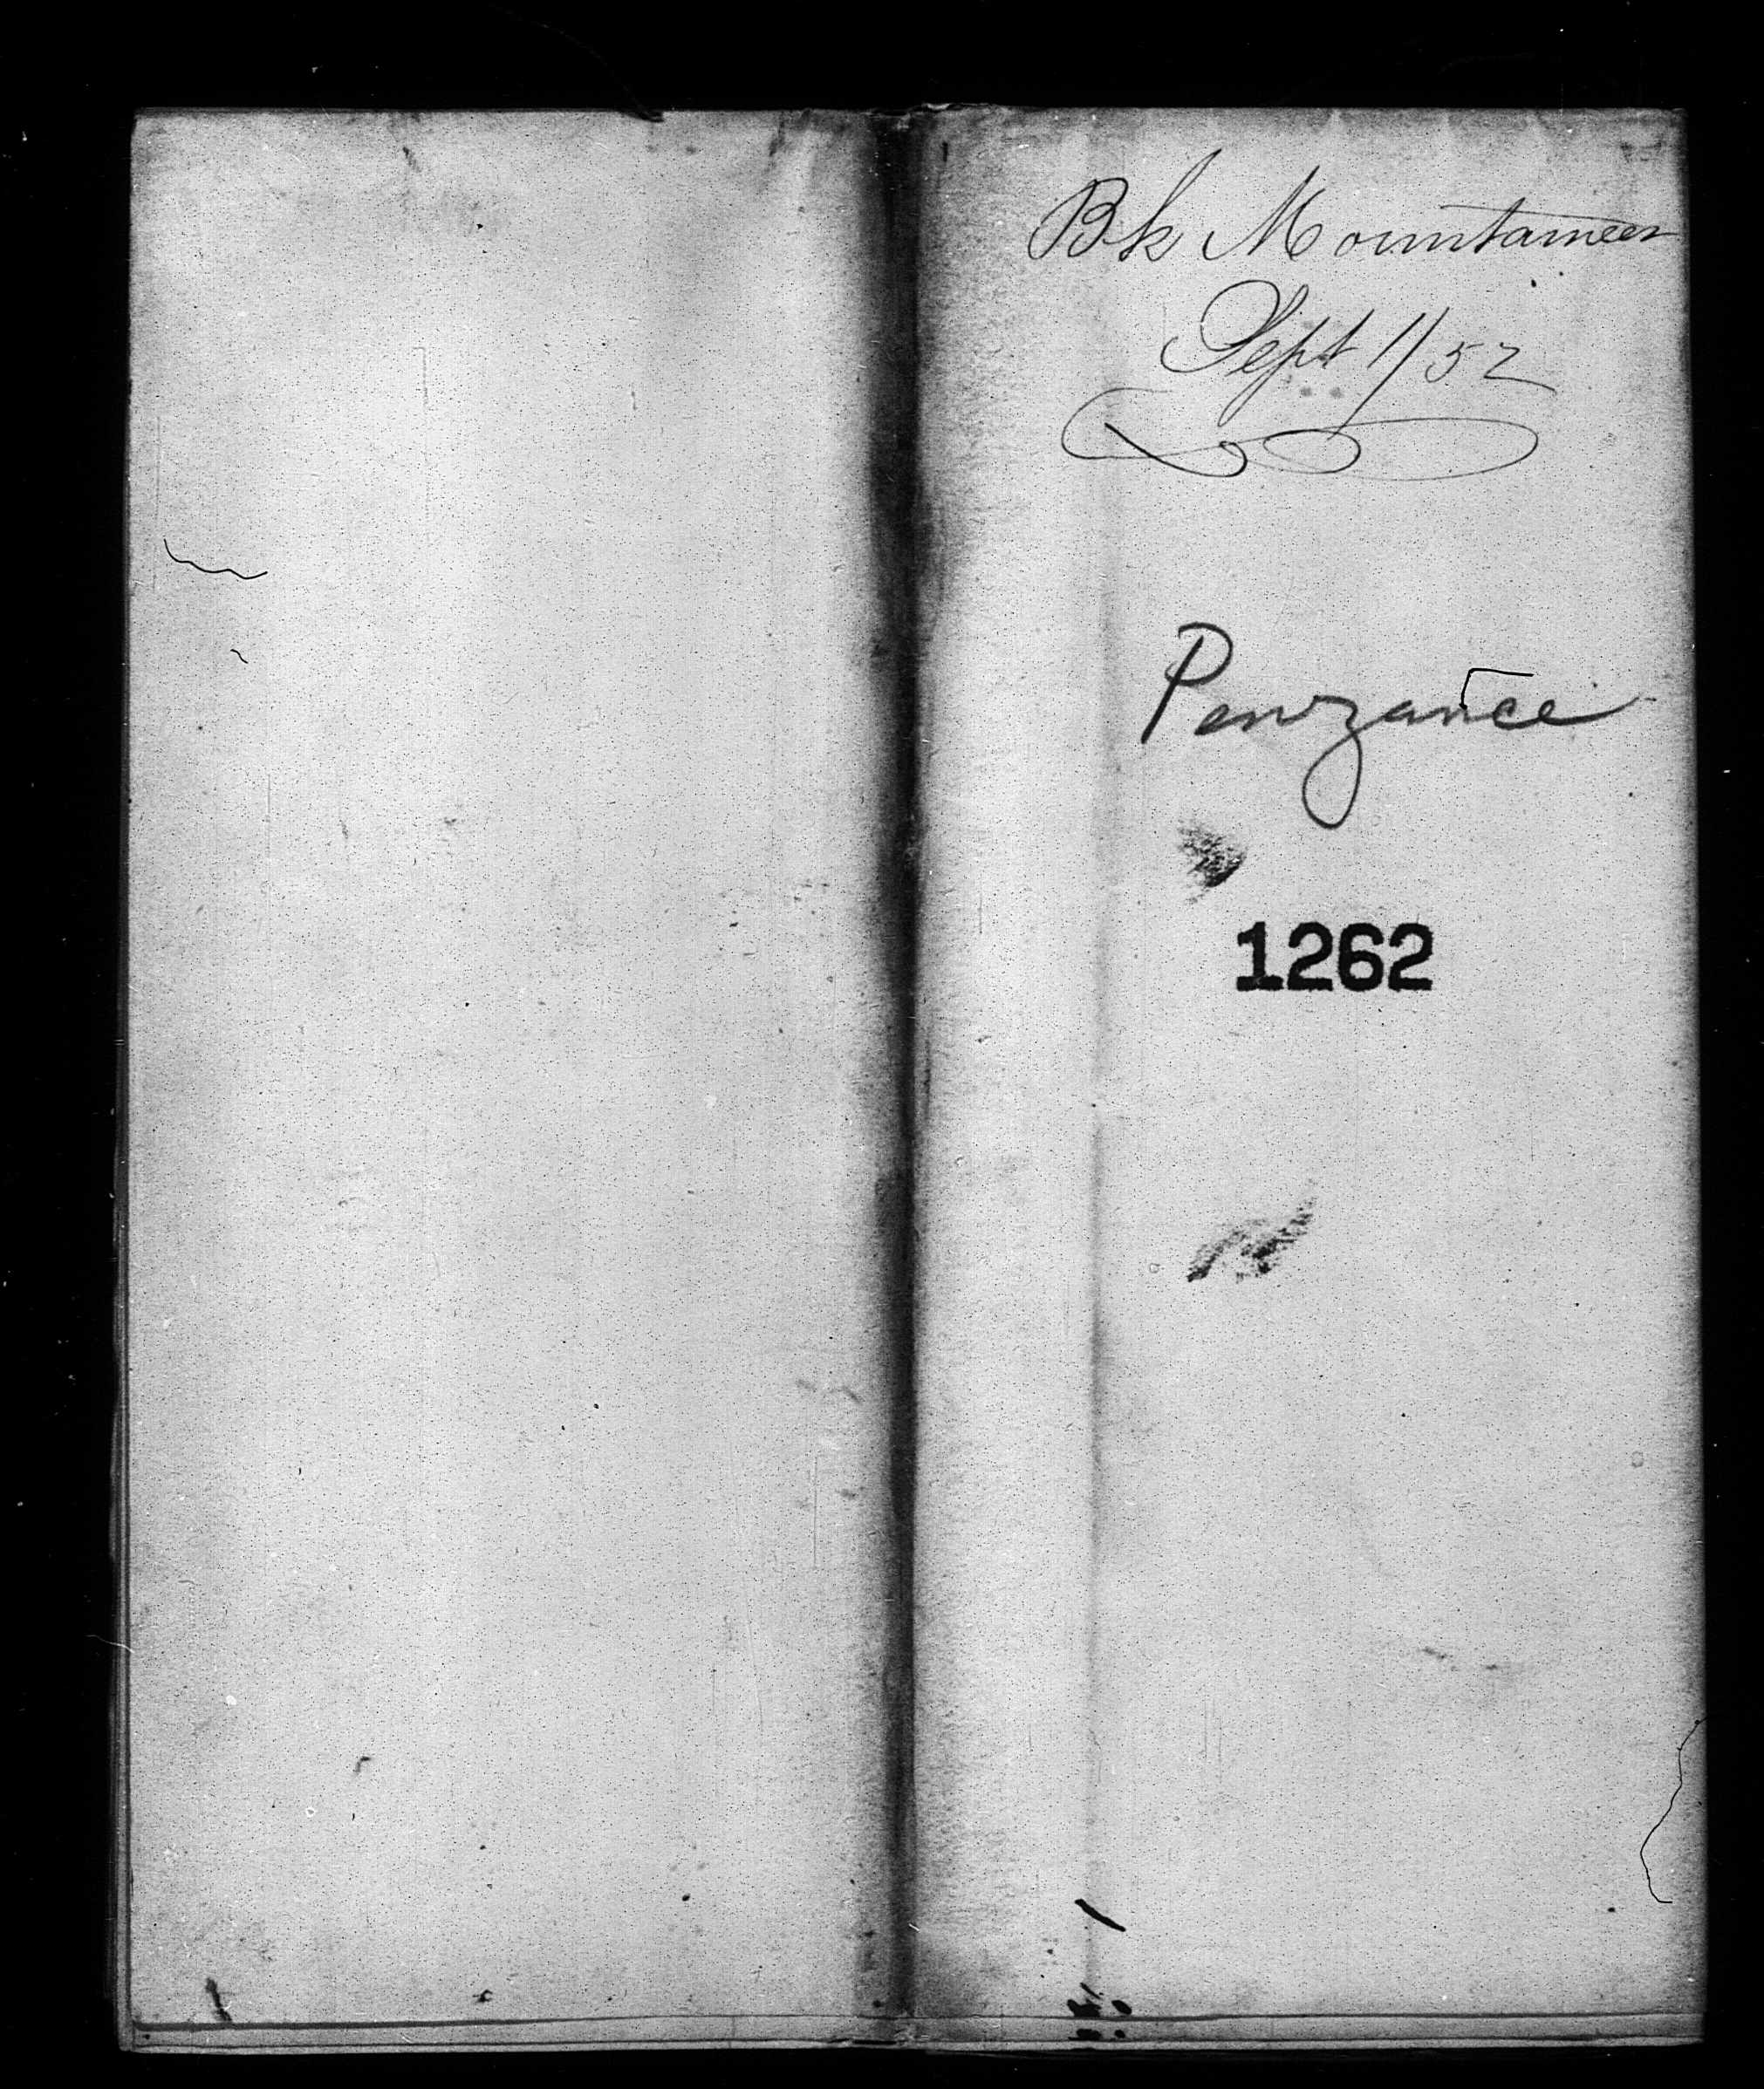 Bk Mountaineer
Sept 1/52
Penzance
1262